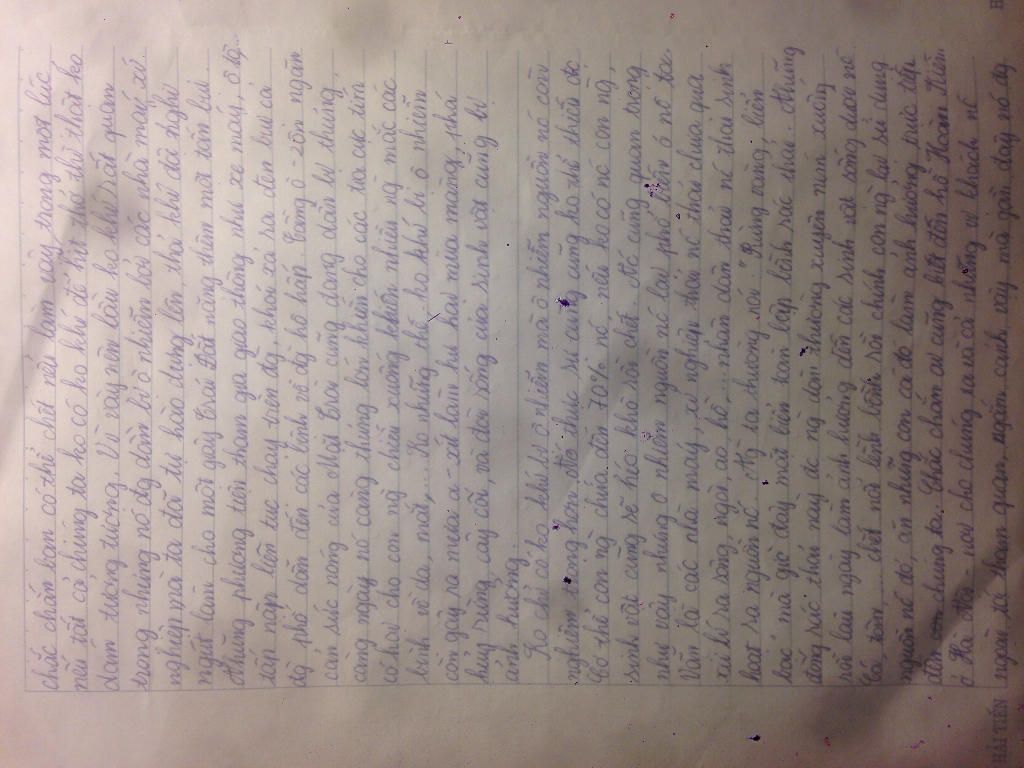 chắc chắn bạn có thể chết nếu làm này trong một lúc
nếu tất cả chúng ta ko có ko khí để hít thở thì thật ko
dám tưởng tượng. Vì vậy nên bầu ko khí rất quan
trọng nhưng nó đg dần bị ô nhiễm bởi các nhà máy, xí
nghiệp mà ta đã tự hào dựng lên, thải khí độc nghi
ngút làm cho mỗi ngày Trái Đất nặng thêm một tấn bụi
Những phương tiện tham gia giao thông như xe máy, ô tô..
tấp nập liên tục chạy trên đg, khói xả ra đen bụi cả
đg phố dẫn đến các bệnh về đg hô hấp. Tầng ô-zôn ngăn
cản sức nóng của Mặt Trời cũng đang dần bị thủng,
càng ngày nó càng thủng lớn khiến cho các tia cực tím
có hại cho con ng chiếu xuống khiến nhiều ng mắc các
bệnh về da, mắt,... Ko những thế, ko khí bị ô nhiễm
còn gây ra mưa a-xít làm hư hại mùa màng, phá
huỷ rừng cây cối, và đời sống của sinh vật cũng bị
ảnh hưởng.
Ko chỉ có ko khí bị ô nhiễm mà ô nhiễm nguồn nó còn
nghiêm trọng hơn. Nó thực sự cũng ko thể thiếu đc
Cơ thể con ng chứa đến 70% nó, nếu ko có nó con ng,
sinh vật cũng sẽ héo khô rồi chết. Nó cũng quan trọng
như vậy nhưng ô nhiễm nguồn nó lại phổ biến ở nó ta.
Vẫn là các nhà máy, xí nghiệp thải nó thải chưa qua
xử lí ra sông, ngòi, ao, hồ... nhân dân thải nó thải sinh
hoạt ra nguồn nó. Ng ta thường nói " Rừng vàng, biển
bạc" mà giờ đây mặt biển toàn lấp lánh rác thải. Những
đống rác thải này đc ng dân thường xuyên ném xuống,
rồi lâu ngày làm ảnh hưởng đến các sinh vật sống dưới nó
Cá, tôm... chết nổi lềnh bềnh rồi chính con ng lại sử dụng
nguồn nó đó, ăn những con cá đó làm ảnh hưởng trực tiếp
đến chúng ta. Chắc chắn ai cũng biết đến hồ Hoàn Kiếm
ở Hà Nội nơi cho chúng ta và cả những vị khách nó
ngoài tới tham quan, ngắm cảnh này mà gần đây nó đg
HẢI TIẾN
H